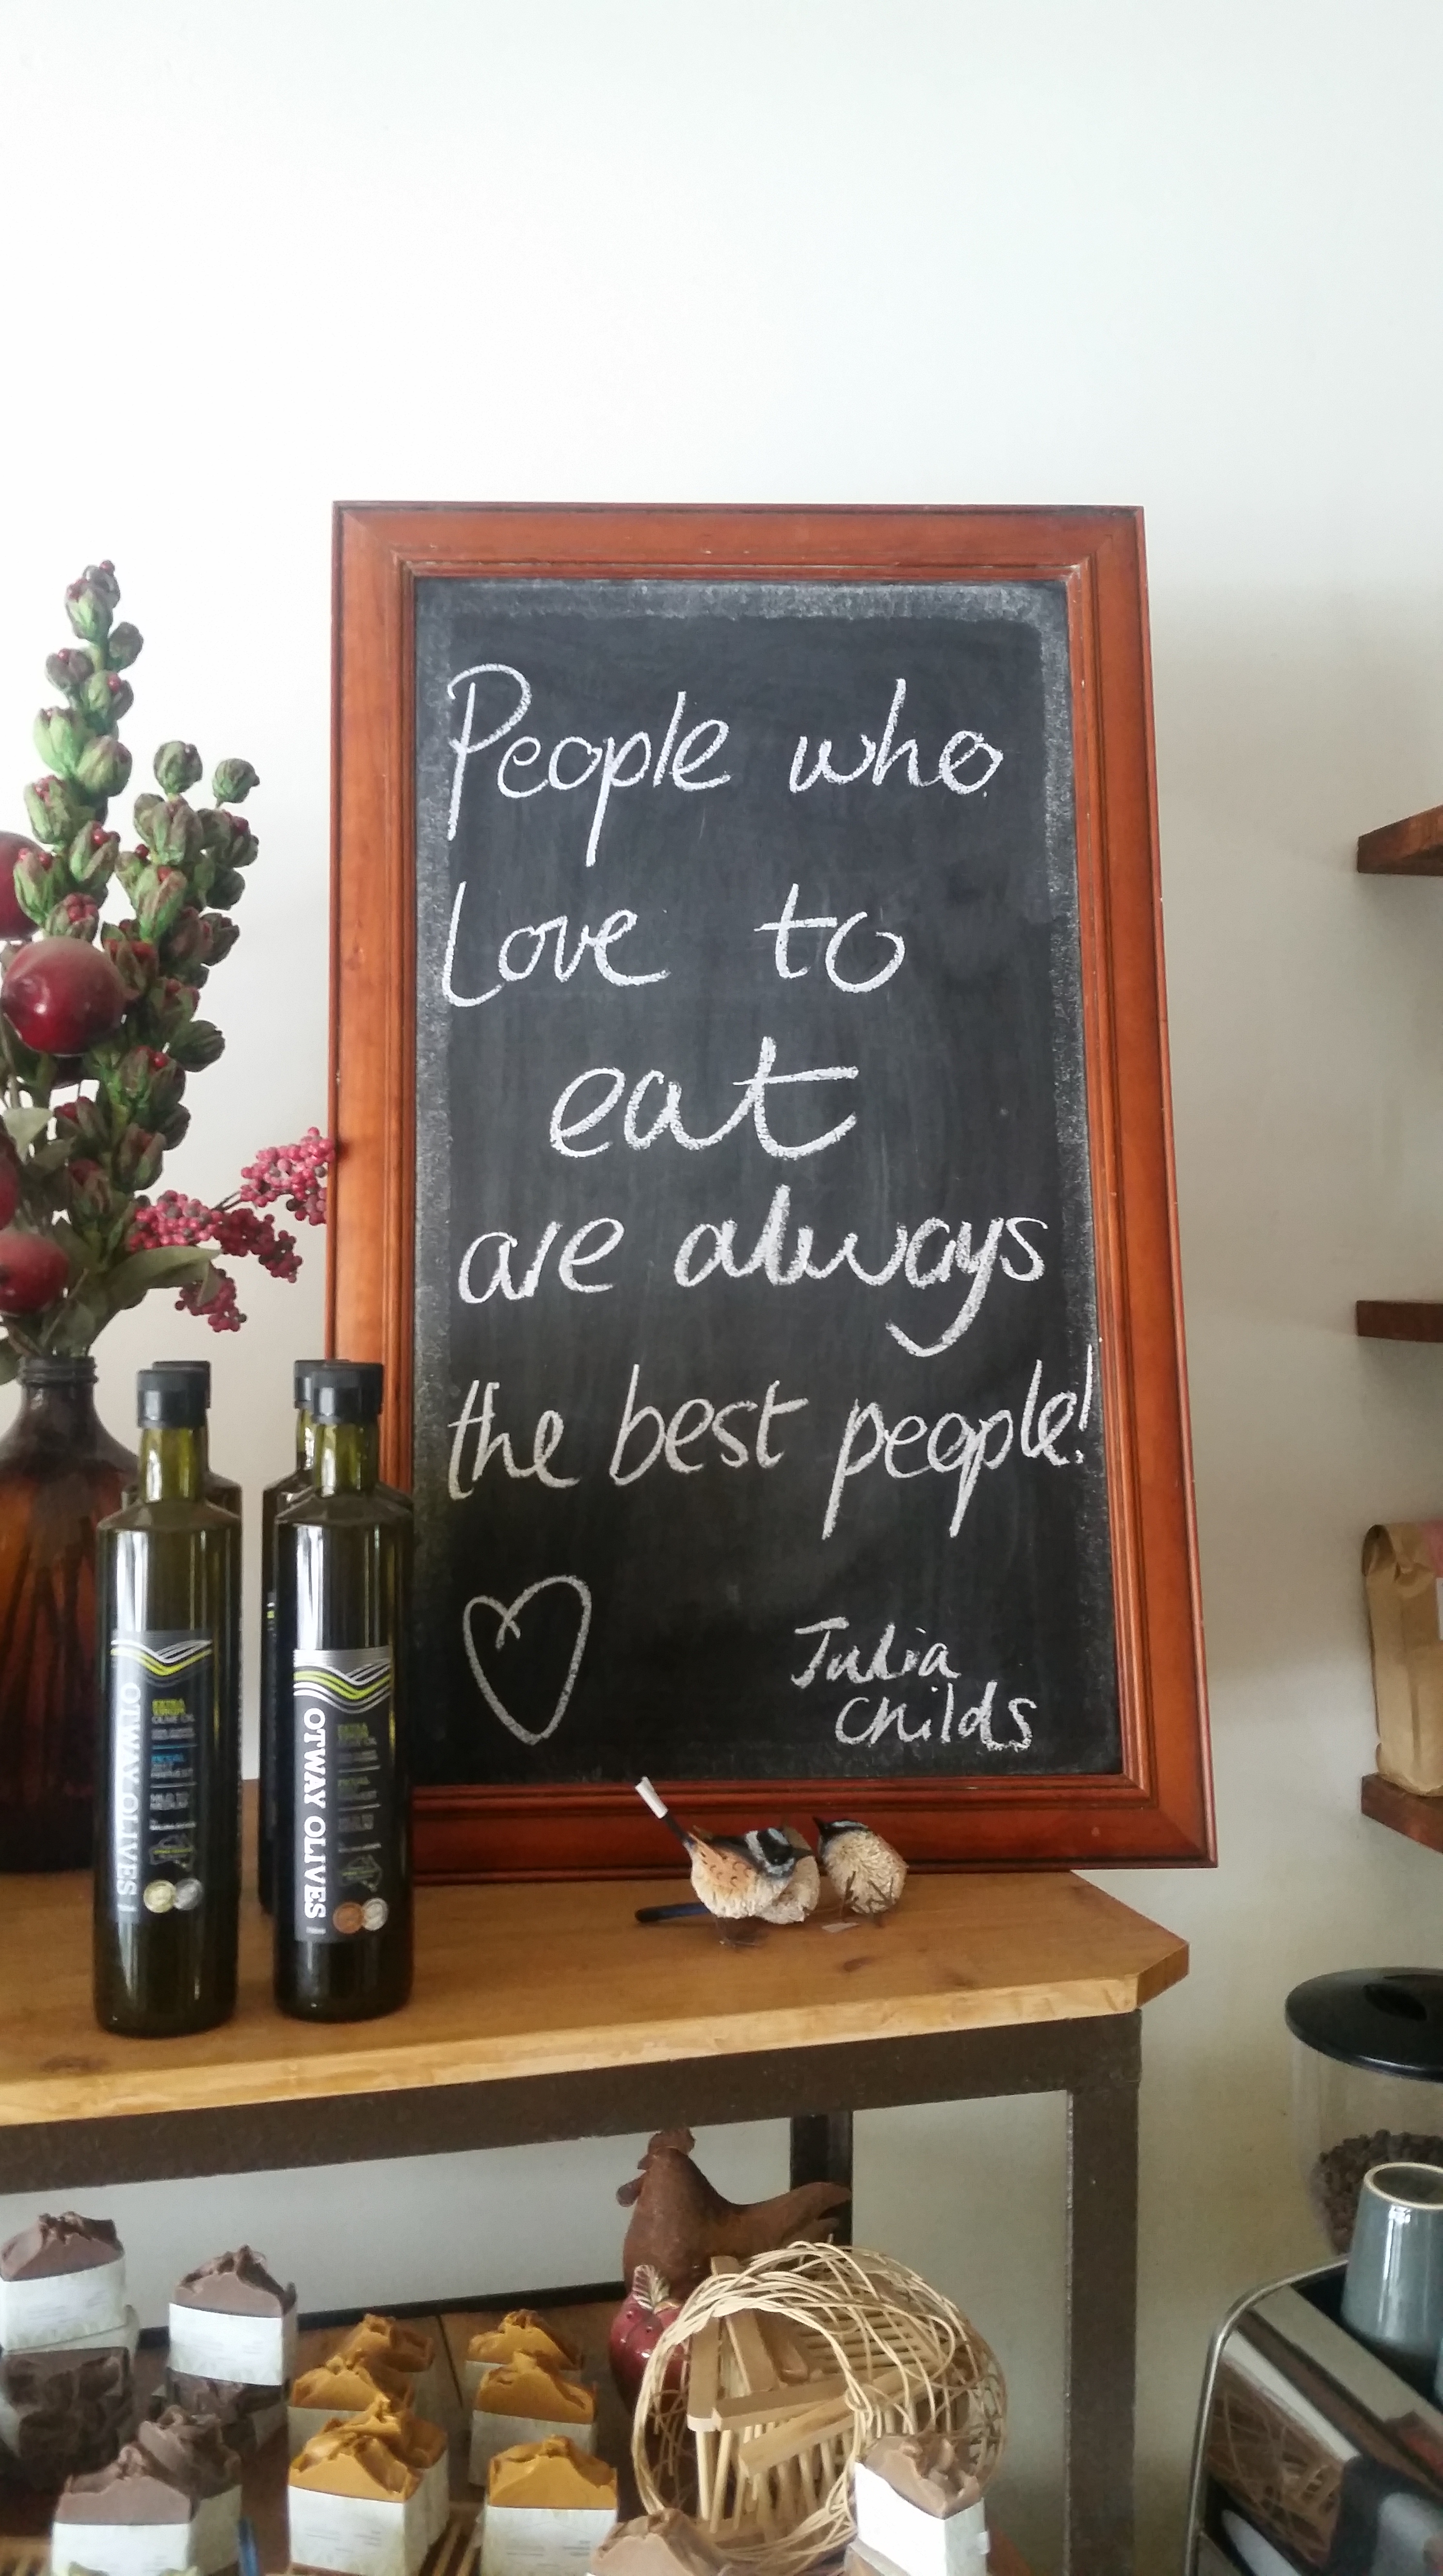 People who
Love to
eat
are always
the best people!
Julia
Childs
OTWAY OLIVES
EXTRA
VIRGIN
OLIVE OIL
OTWAY OLIVES
EXTRA
VIRGIN
OLIVE OIL